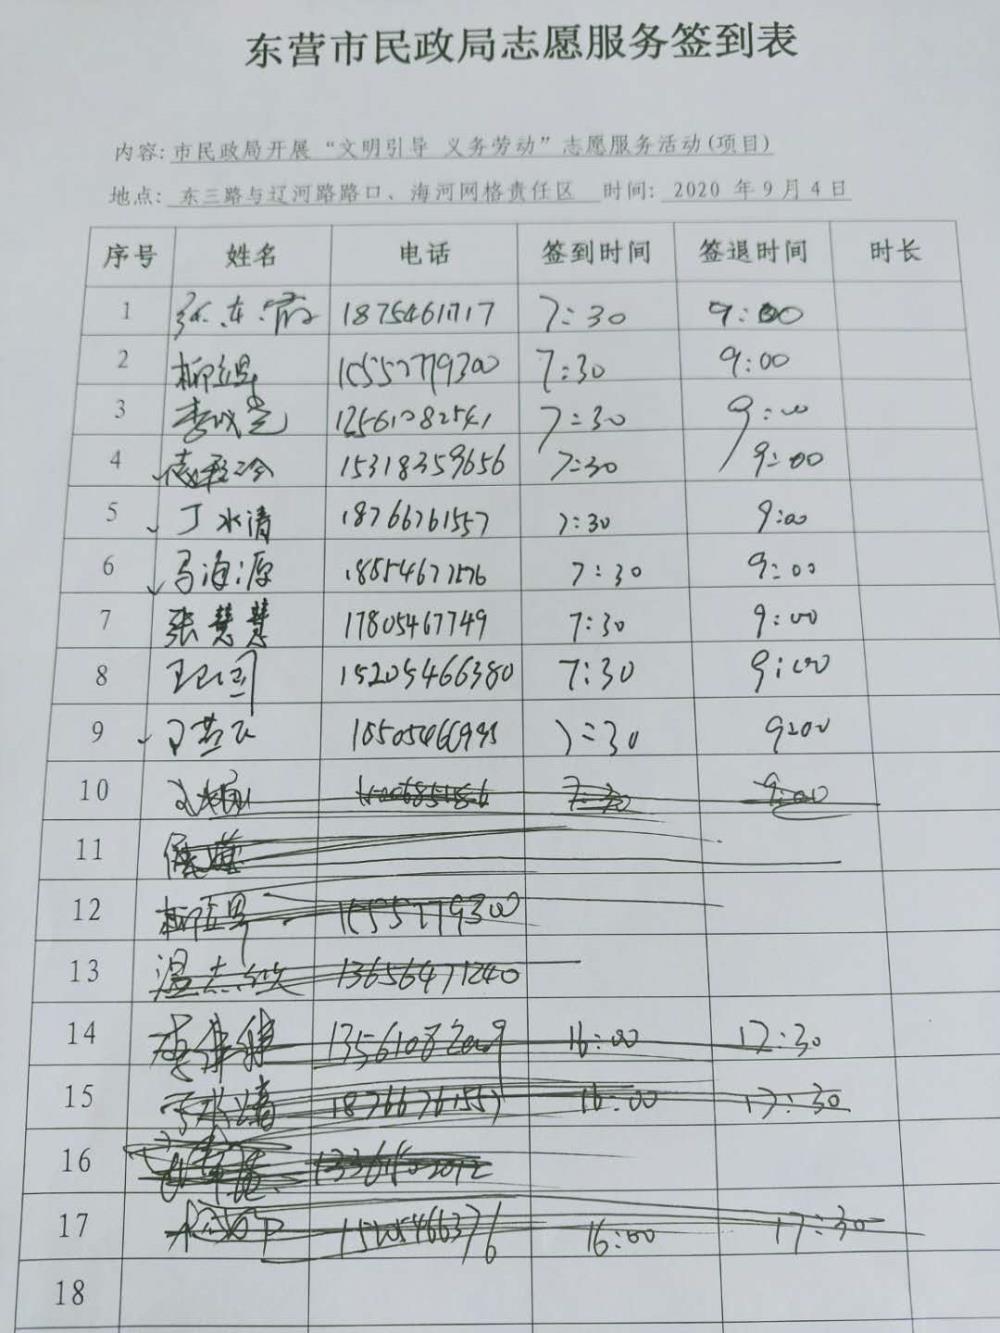 东营市民政局志愿服务签到表
内容: 市民政局开展“文明引导 义务劳动”志愿服务活动(项目)
地点: 东三路与辽河路路口、海河网格责任区 时间: 2020 年9月4日
序号 姓名 电话 签到时间 签退时间 时长
1 张东霞 18754461717 7:30 9:00
2 柳亚男 15552779300 7:30 9:00
3 李成光 13561082541 7:30 9:00
4 15318359656 7:30 9:00
5 丁水清 18766761557 7:30 9:00
6 马海源 18554671576 7:30 9:00
7 张慧慧 17805467749 7:30 9:00
8 王卫国 15205466380 7:30 9:00
9 丁燕民 7:30 9:00
10 7:30 9:00
11
12 柳亚男 15552779300
13 温杰欣 13656471240
14 13561082009 16:00 17:30
15 丁水清 18766761557 16:00 17:30
16
17 15205466376 16:00 17:30
18